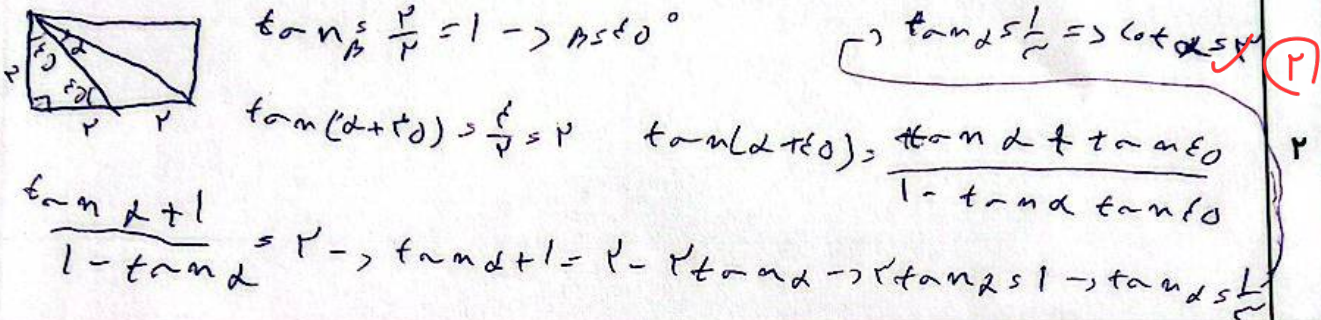 tan β = ۲/۲ = 1 -> β = ۴۵°
tan α = 1/۳ => cot α = ۳ ✓ ۲
۲ ۴۵ α ۴۵ ۲ ۲
tan(α+۴۵) = ۴/۲ = ۲ tan(α+۴۵) = (tan α + tan ۴۵)/(1 - tan α tan ۴۵) ۲
(tan α + 1)/(1 - tan α) = ۲ -> tan α + 1 = ۲ - ۲ tan α -> ۳ tan α = 1 -> tan α = 1/۳